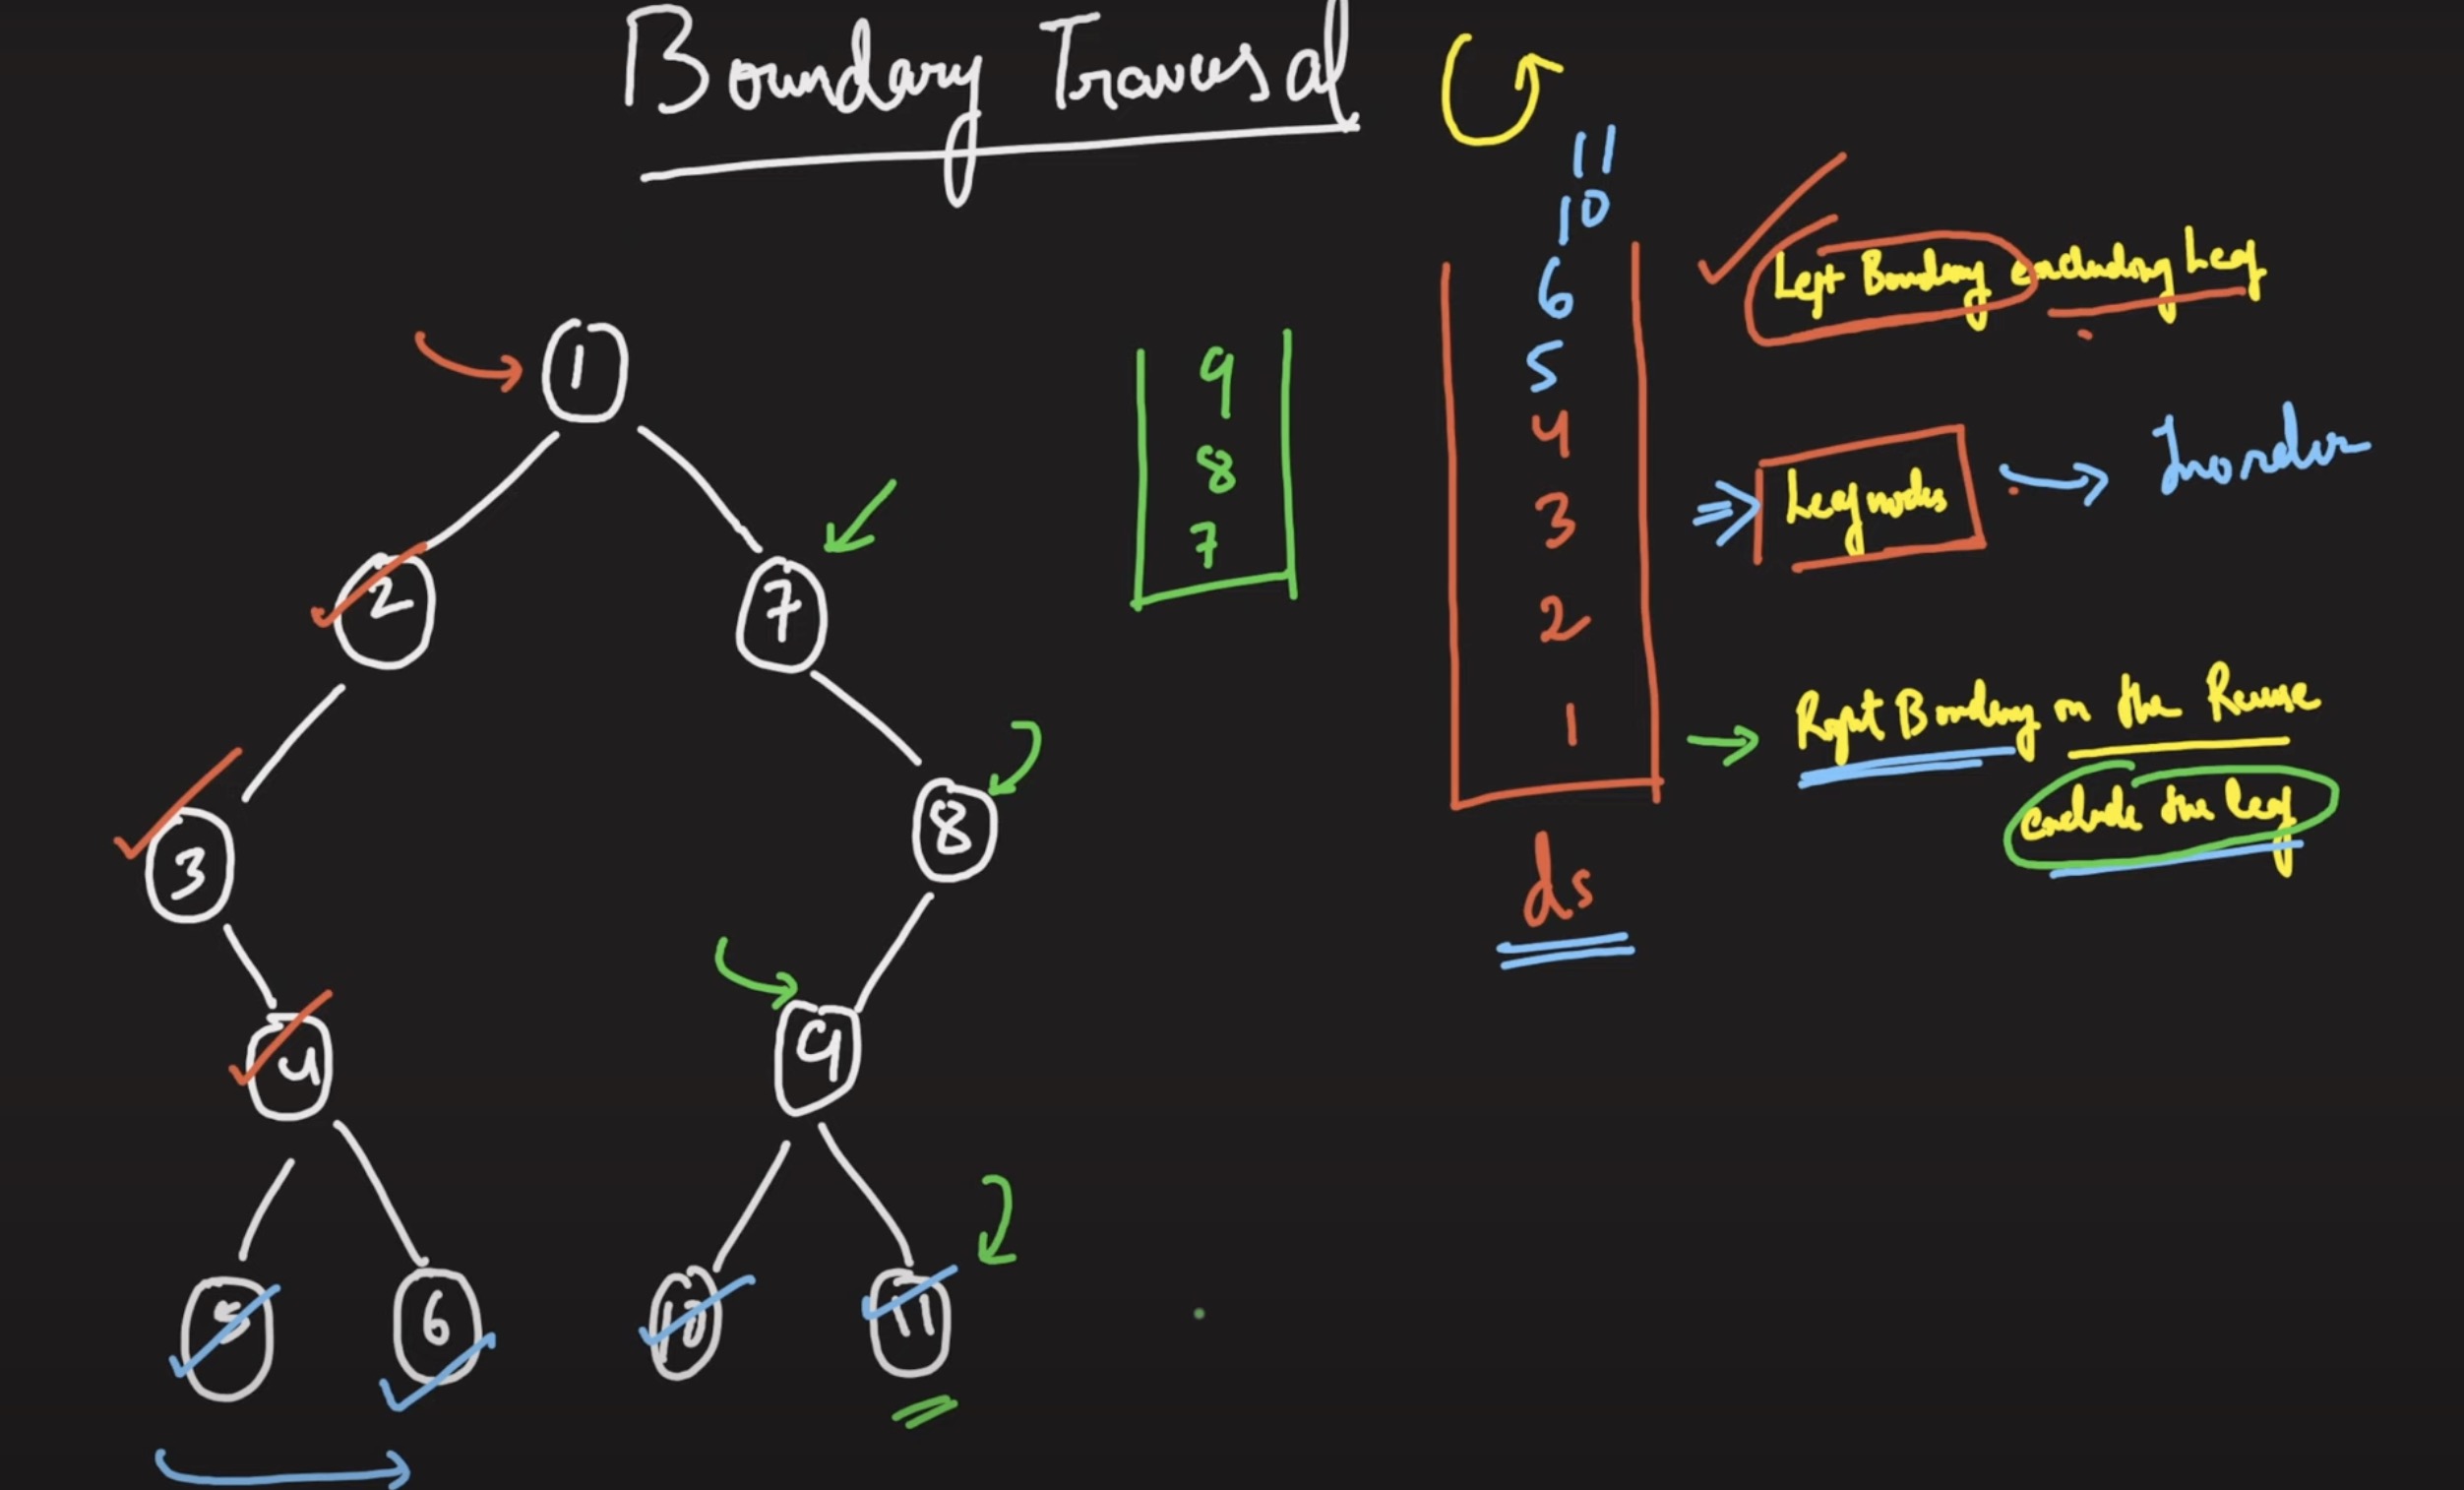 Boundary Traversal
11
10
6
5
4
3
2
1
ds
9
8
7
1
2
7
3
8
4
9
5
6
10
11
Left Boundary excluding Leaf
Leaf nodes
Inorder
Right Boundary in the Reverse
Exclude the leaf